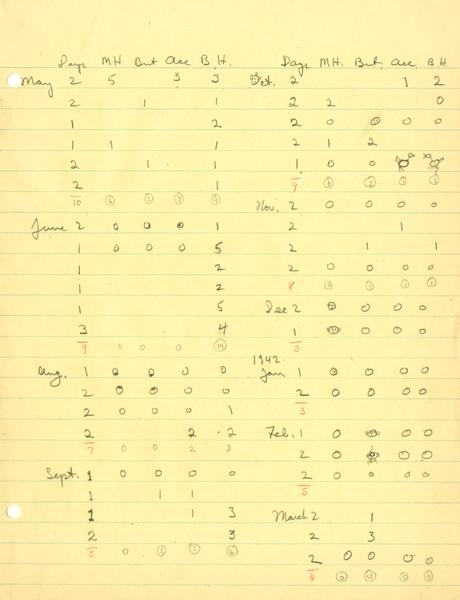 Days MH But Acc B.H.
May 2 5 3 3
2 1 1
1 2
1 1 1
2 1 1
2 1
10 6 2 3
June 2 0 0 0 1
1 0 0 0 5
1 2
1 2
1 5
3 4
9 0 0 0 19
Aug. 1 0 0 0 0
2 0 0 0 0
2 0 0 0 1
2 2 2
7 0 0 2 3
Sept. 1 0 0 0 0
1 1 1
1 1 3
2 3
5 0 1 2 6
Days MH. But. Acc. B.H.
Oct. 2 1 2
2 2 0
2 0 0 0 0
2 1 2
1 0 0
9 3 2
Nov. 2 0 0 0 0
2 1
2 1 1
2 0 0 0 0
8 1 1 1
Dec 2 0 0 0 0
1 0 0 0
3
1942
Jan 1 0 0 0 0
2 0 0 0 0
3
Feb. 1 0 0 0
2 0 0 0
2 0 0 0 0
5
March 2 1
2 3
2 0 0 0 0
6 0 4 0 0